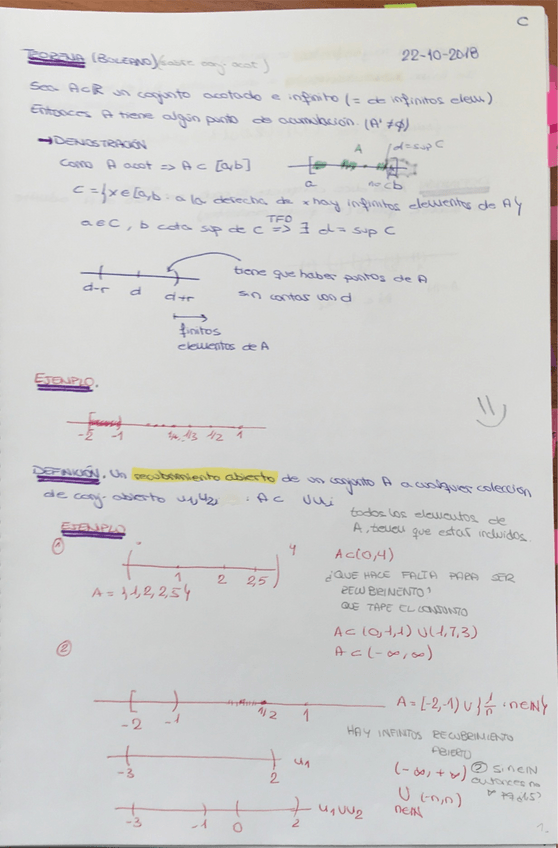 C
TEOREMA (BOLZANO) (sobre conj. acot)
22-10-2018
Sea A⊂ℝ un conjunto acotado e infinito (= de infinitos elem)
Entonces A tiene algún punto de acumulación. (A' ≠ ∅)
→ DEMOSTRACIÓN
Como A acot => A ⊂ [a,b]
A
d = sup C
a
b
C = {x ∈ [a,b] : a la derecha de x hay infinitos elementos de A}
a ∈ C, b cota sup de C => ∃ d = sup C
d-r d d+r
tiene que haber puntos de A
sin contar con d
finitos
elementos de A
EJEMPLO.
-2 -1 1/4 1/3 1/2 1
DEFINICIÓN. Un recubrimiento abierto de un conjunto A a cualquier colección
de conj. abierto u₁u₂ : A ⊂ ∪ui
todos los elementos de
A, tienen que estar incluidos.
EJEMPLO
①
1 2 2,5 4
A = {1, 2, 2,5}
A ⊂ (0,4)
¿QUE HACE FALTA PARA SER
RECUBRIMIENTO?
QUE TAPE EL CONJUNTO
A ⊂ (0,1,1) ∪ (1,7,3)
A ⊂ (-∞, ∞)
②
-2 -1 1/2 1
A = [-2,-1) ∪ {1/n : n∈ℕ}
HAY INFINITOS RECUBRIMIENTO
ABIERTO
-3 2 u₁
(-∞, +∞)
∪ (-n,n)
n∈ℕ
-3 -1 0 2 u₁∪u₂
1.